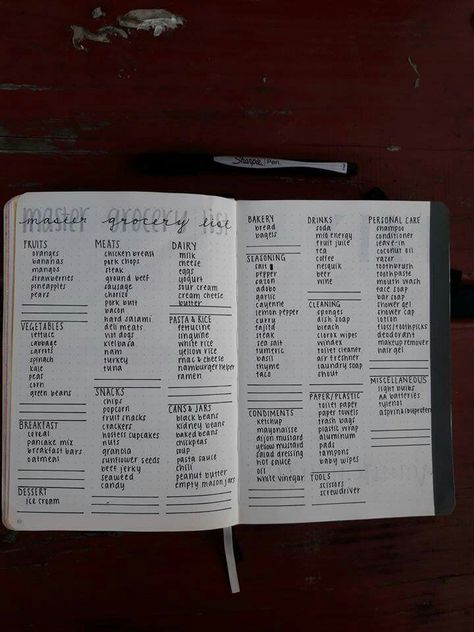 Sharpie Pen
master grocery list
FRUITS
oranges
bananas
mangos
strawberries
pineapples
pears
VEGETABLES
lettuce
cabbage
carrots
spinach
kale
peas
corn
green beans
BREAKFAST
cereal
pancake mix
breakfast bars
oatmeal
DESSERT
ice cream
MEATS
chicken breast
pork chops
steak
ground beef
sausage
chorize
pork butt
bacon
hard salami
deli meats
hot dogs
kielbasa
ham
turkey
tuna
SNACKS
chips
popcorn
fruit snacks
crackers
hostess cupcakes
nuts
granola
sunflower seeds
beef jerky
seaweed
candy
DAIRY
milk
cheese
eggs
yogurt
sour cream
cream cheese
butter
PASTA & RICE
fettucine
linguine
white rice
yellow rice
mac & cheese
hamburger helper
ramen
CANS & JARS
black beans
kidney beans
baked beans
chickpeas
soup
pasta sauce
chili
peanut butter
empty mason jars
BAKERY
bread
bagels
SEASONING
salt
pepper
sazon
adobo
garlic
cayenne
lemon pepper
curry
fajita
steak
sea salt
tumeric
basil
thyme
taco
CONDIMENTS
ketchup
mayonnaise
dijon mustard
yellow mustard
salad dressing
hot sauce
oil
white vinegar
DRINKS
soda
mio energy
fruit juice
tea
coffee
nesquik
beer
wine
CLEANING
sponges
dish soap
bleach
clorox wipes
windex
toilet cleaner
air freshner
laundry soap
shout
PAPER/PLASTIC
toilet paper
paper towels
trash bags
plastic wrap
aluminum
pads
tampons
baby wipes
TOOLS
scissors
screwdriver
PERSONAL CARE
shampoo
conditioner
leave-in
coconut oil
razor
toothbrush
toothpaste
mouth wash
face soap
bar soap
shower gel
shower cap
lotion
floss/toothpicks
deodorant
makeup remover
hair gel
MISCELLANEOUS
light bulbs
AA batteries
tylenol